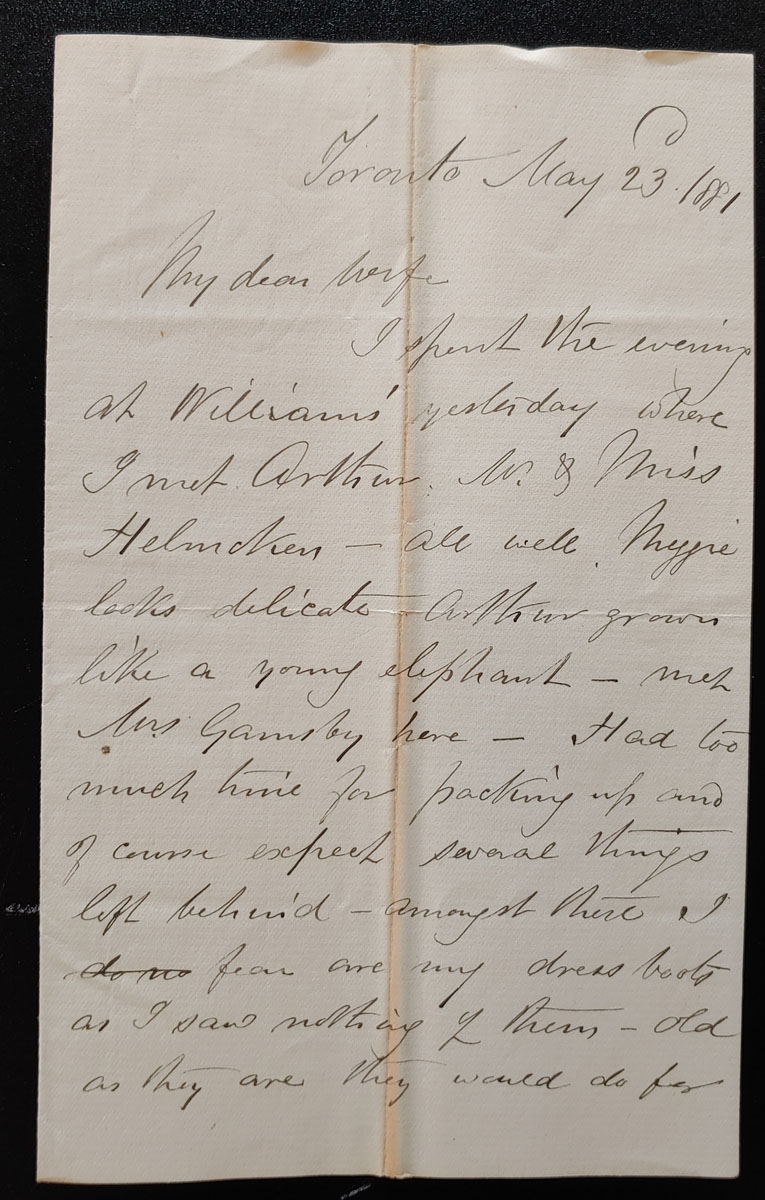 Toronto May 23. 1881
My dear Wife
I spent the evening
at Williams' yesterday where
I met Arthur. M. & Miss
Helmcken — all well.
looks delicate — Arthur grown
like a young elephant — met
Mrs Gamsby here — Had too
much time for packing up and
of course expect several things
left behind — amongst these I
do no fear are my dress boots
as I saw nothing of them — old
as they are they would do for